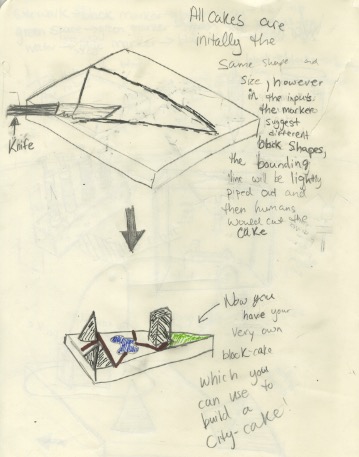 All cakes are
initally the
Same shape and
Size, however
in the inputs
the markers
suggest
different
block shapes,
the bounding
line will be lightly
piped out and
then humans
would cut the
cake
Knife
Now you
have your
very own
block-cake
which you
can use to
build a
City-cake!